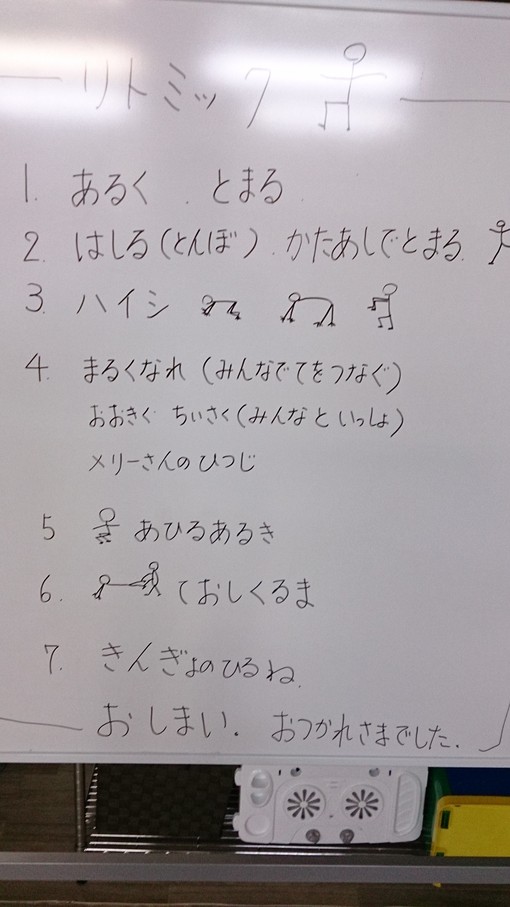 リトミック
1. あるく . とまる
2. はしる(とんぼ) . かたあしでとまる.
3. ハイシ
4. まるくなれ (みんなでてをつなぐ)
おおきく ちいさく(みんなといっしょ)
メリーさんのひつじ
5 あひるあるき
6. ておしくるま
7. きんぎょのひるね.
おしまい. おつかれさまでした.